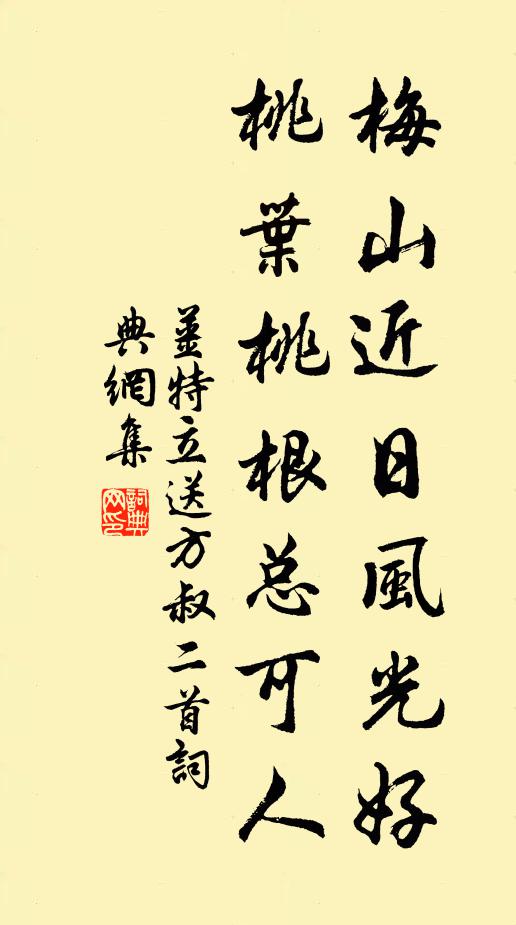 梅山近日風光好
桃葉桃根总可人
薑特立送方叔二首詞
典網集
詞典
网印